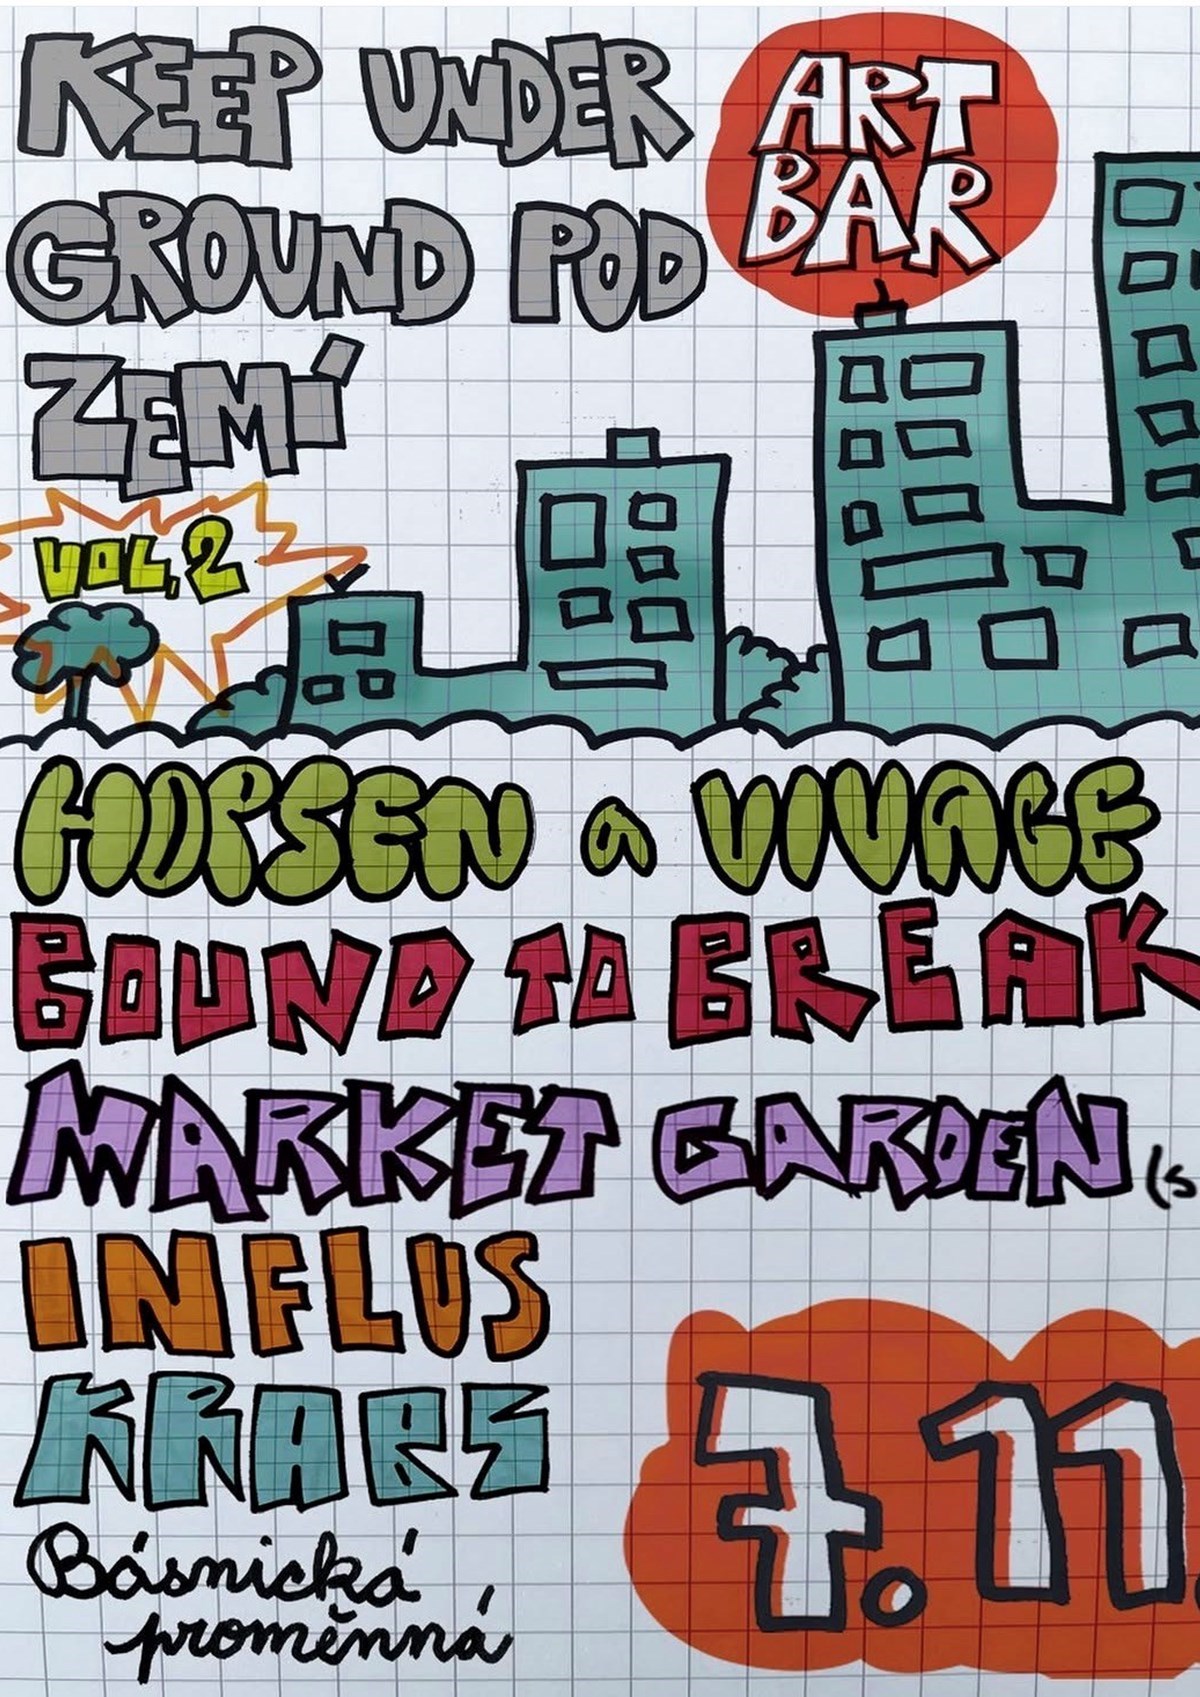 KEEP UNDER
GROUND POD
ZEMÍ
ART
BAR
VOL. 2
HOPSEN a VIVAGE
BOUND TO BREAK
MARKET GARDEN (s
INFLUS
KRABS
Básnická
proměnná
7. 11.